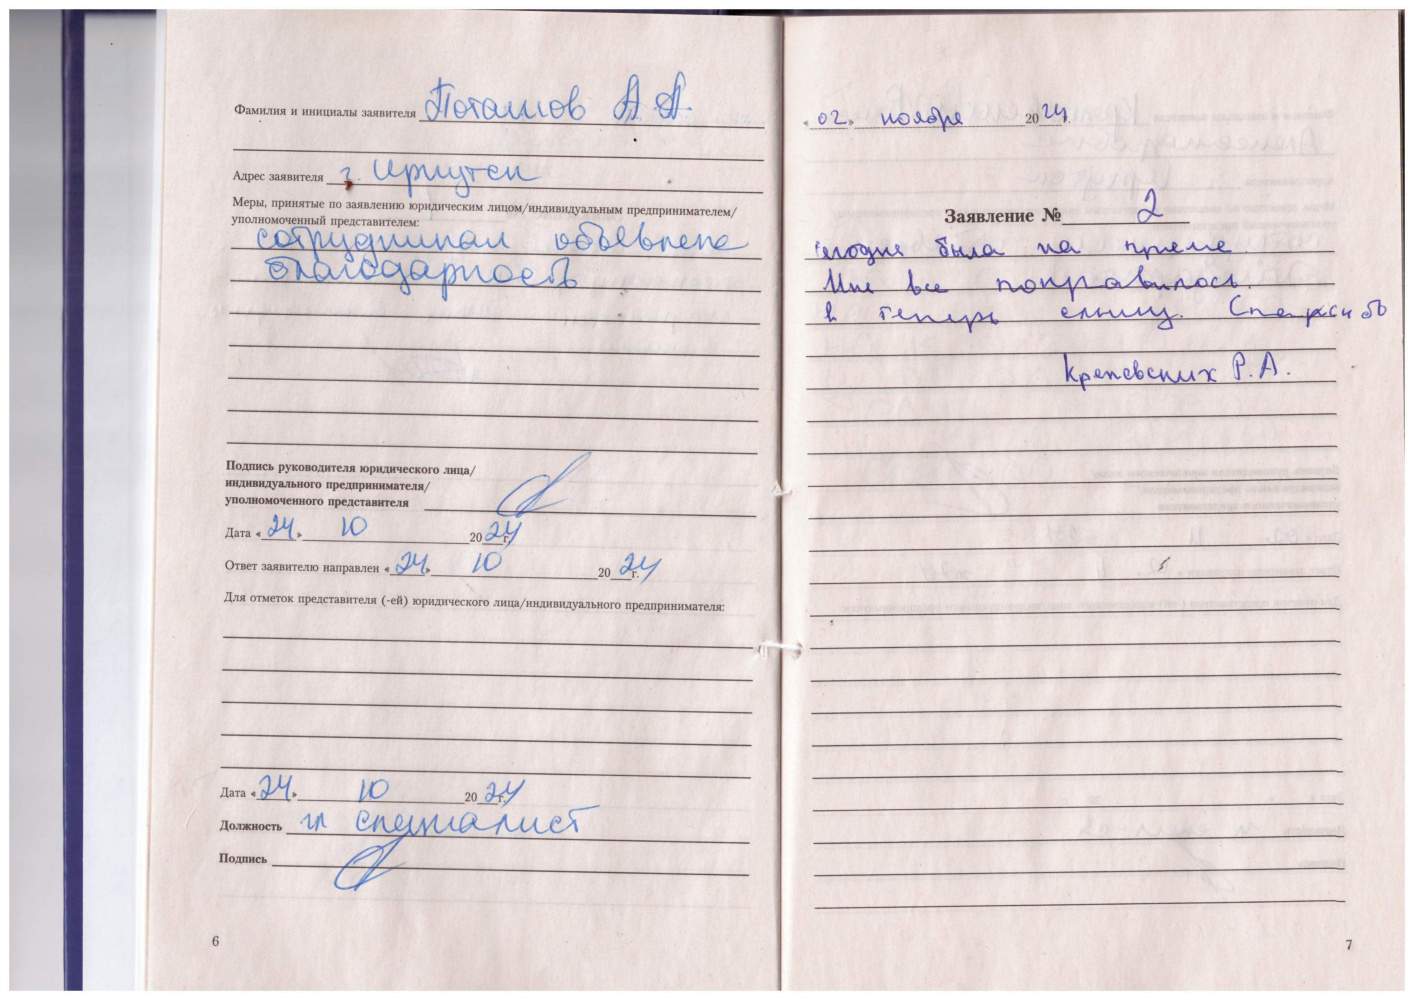 Фамилия и инициалы заявителя Потапов А.А.
Адрес заявителя г. Иркутск
Меры, принятые по заявлению юридическим лицом/индивидуальным предпринимателем/
уполномоченный представителем:
сотрудникам объявлена
благодарность
Подпись руководителя юридического лица/
индивидуального предпринимателя/
уполномоченного представителя
Дата «24» 10 2024 г.
Ответ заявителю направлен «24» 10 2024 г.
Для отметок представителя (-ей) юридического лица/индивидуального предпринимателя:
Дата «24» 10 2024 г.
Должность гл специалист
Подпись
6
«02» ноября 2024 г.
Заявление № 2
Сегодня была на приеме
Мне все понравилось.
я теперь слышу. Спасибо
Р.А.
7